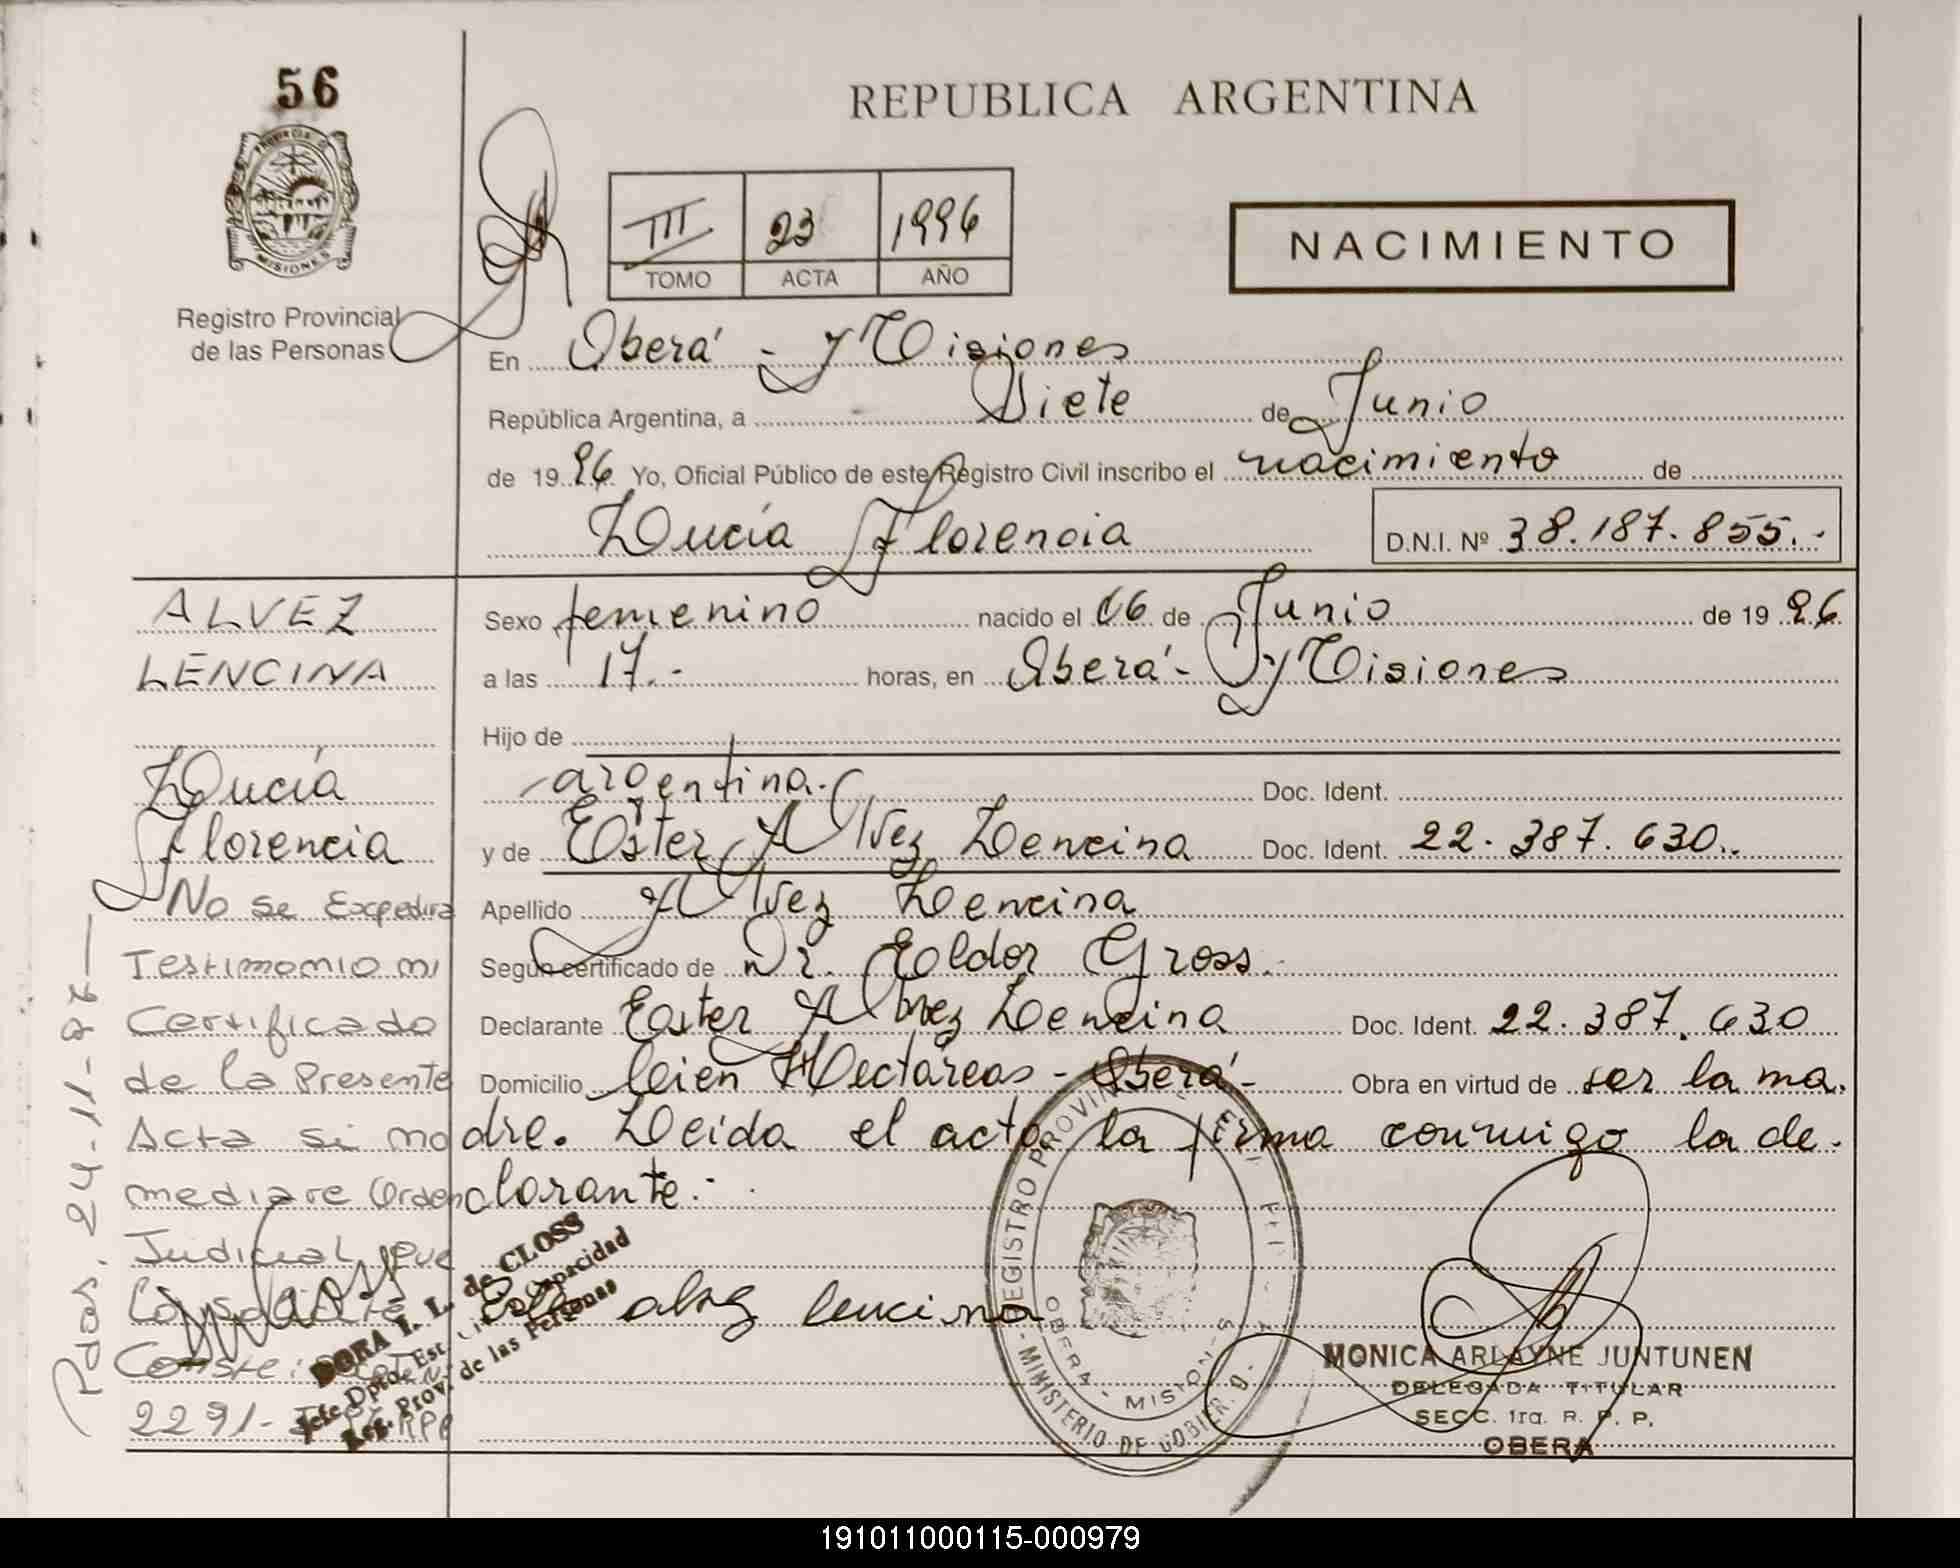 56
REPUBLICA ARGENTINA
PROVINCIA D
MISIONES
Registro Provincial
de las Personas
III 23 1996
TOMO ACTA AÑO
NACIMIENTO
En Oberá - Misiones
República Argentina, a Siete de Junio
de 19 96 Yo, Oficial Público de este Registro Civil inscribo el nacimiento de
Lucía Florencia D.N.I. Nº 38.187.855.-
ALVEZ
LENCINA
Lucía
Florencia
No se Expedira
Testimonio ni
Certificado
de la Presente
Acta si no
mediare Orden
Judicial que
Lo solicite
Conste:
2291-
Pdas, 24-11-97
Sexo femenino nacido el 06 de Junio de 19 96
a las 17.- horas, en Oberá - Misiones
Hijo de
argentina. Doc. Ident.
y de Ester Alvez Lencina Doc. Ident. 22.387.630..
Apellido Alvez Lencina
Según certificado de Dr. Eldor Gross.
Declarante Ester Alvez Lencina Doc. Ident. 22.387.630
Domicilio Cien Hectáreas - Oberá - Obra en virtud de ser la ma.
dre. Leida el acta, la firma conmigo la de.
clarante.
DORA I. L. de CLOSS
Jefe Dpto. Est. Civil Capacidad
Reg. Prov. de las Personas
alvez lencina
REGISTRO PROVINCIAL DE
OBERA - MISIONES
MINISTERIO DE GOBIER
MONICA ARLAYNE JUNTUNEN
DELEGADA TITULAR
SECC. 1ra. R. P. P.
OBERA
191011000115-000979